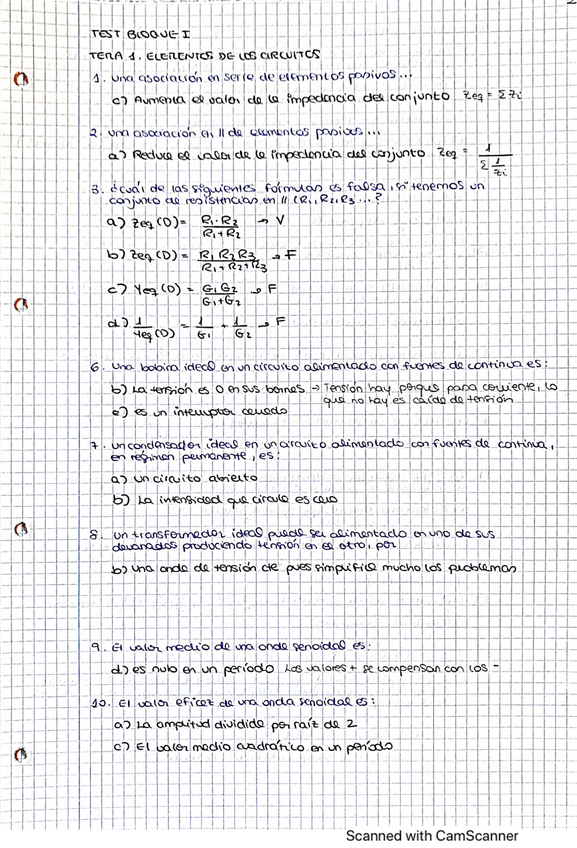 TEST BLOQUE I
TEMA 1. ELEMENTOS DE LOS CIRCUITOS
1. Una asociación en serie de elementos pasivos...
c) Aumenta el valor de la impedancia del conjunto Zeq = Σ Zi
2. Una asociación en // de elementos pasivos...
a) Reduce el valor de la impedancia del conjunto Zeq = 1 / (Σ 1/Zi)
3. ¿Cuál de las siguientes fórmulas es falsa, si tenemos un
conjunto de resistencias en // (R1, R2, R3...?
a) Zeq (D) = R1·R2 / R1+R2 → V
b) Zeq (D) = R1 R2 R3 / R1+R2+R3 → F
c) Yeq (D) = G1 G2 / G1+G2 → F
d) 1/Yeq (D) = 1/G1 + 1/G2 → F
6. Una bobina ideal en un circuito alimentado con fuentes de continua es:
b) La tensión es 0 en sus bornes → Tensión hay porque pasa corriente, lo
que no hay es caída de tensión
c) es un interruptor cerrado
7. Un condensador ideal en un circuito alimentado con fuentes de continua,
en régimen permanente, es:
a) Un circuito abierto
b) La intensidad que circula es cero
8. Un transformador ideal puede ser alimentado en uno de sus
devanados produciendo tensión en el otro, por
b) Una onda de tensión cte pues simplifica mucho los problemas
9. El valor medio de una onda senoidal es:
d) es nulo en un período Los valores + se compensan con los -
10. El valor eficaz de una onda senoidal es:
a) La amplitud dividida por raíz de 2
c) El valor medio cuadrático en un período
Scanned with CamScanner